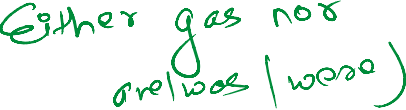 Either gas nor
are/was (were)